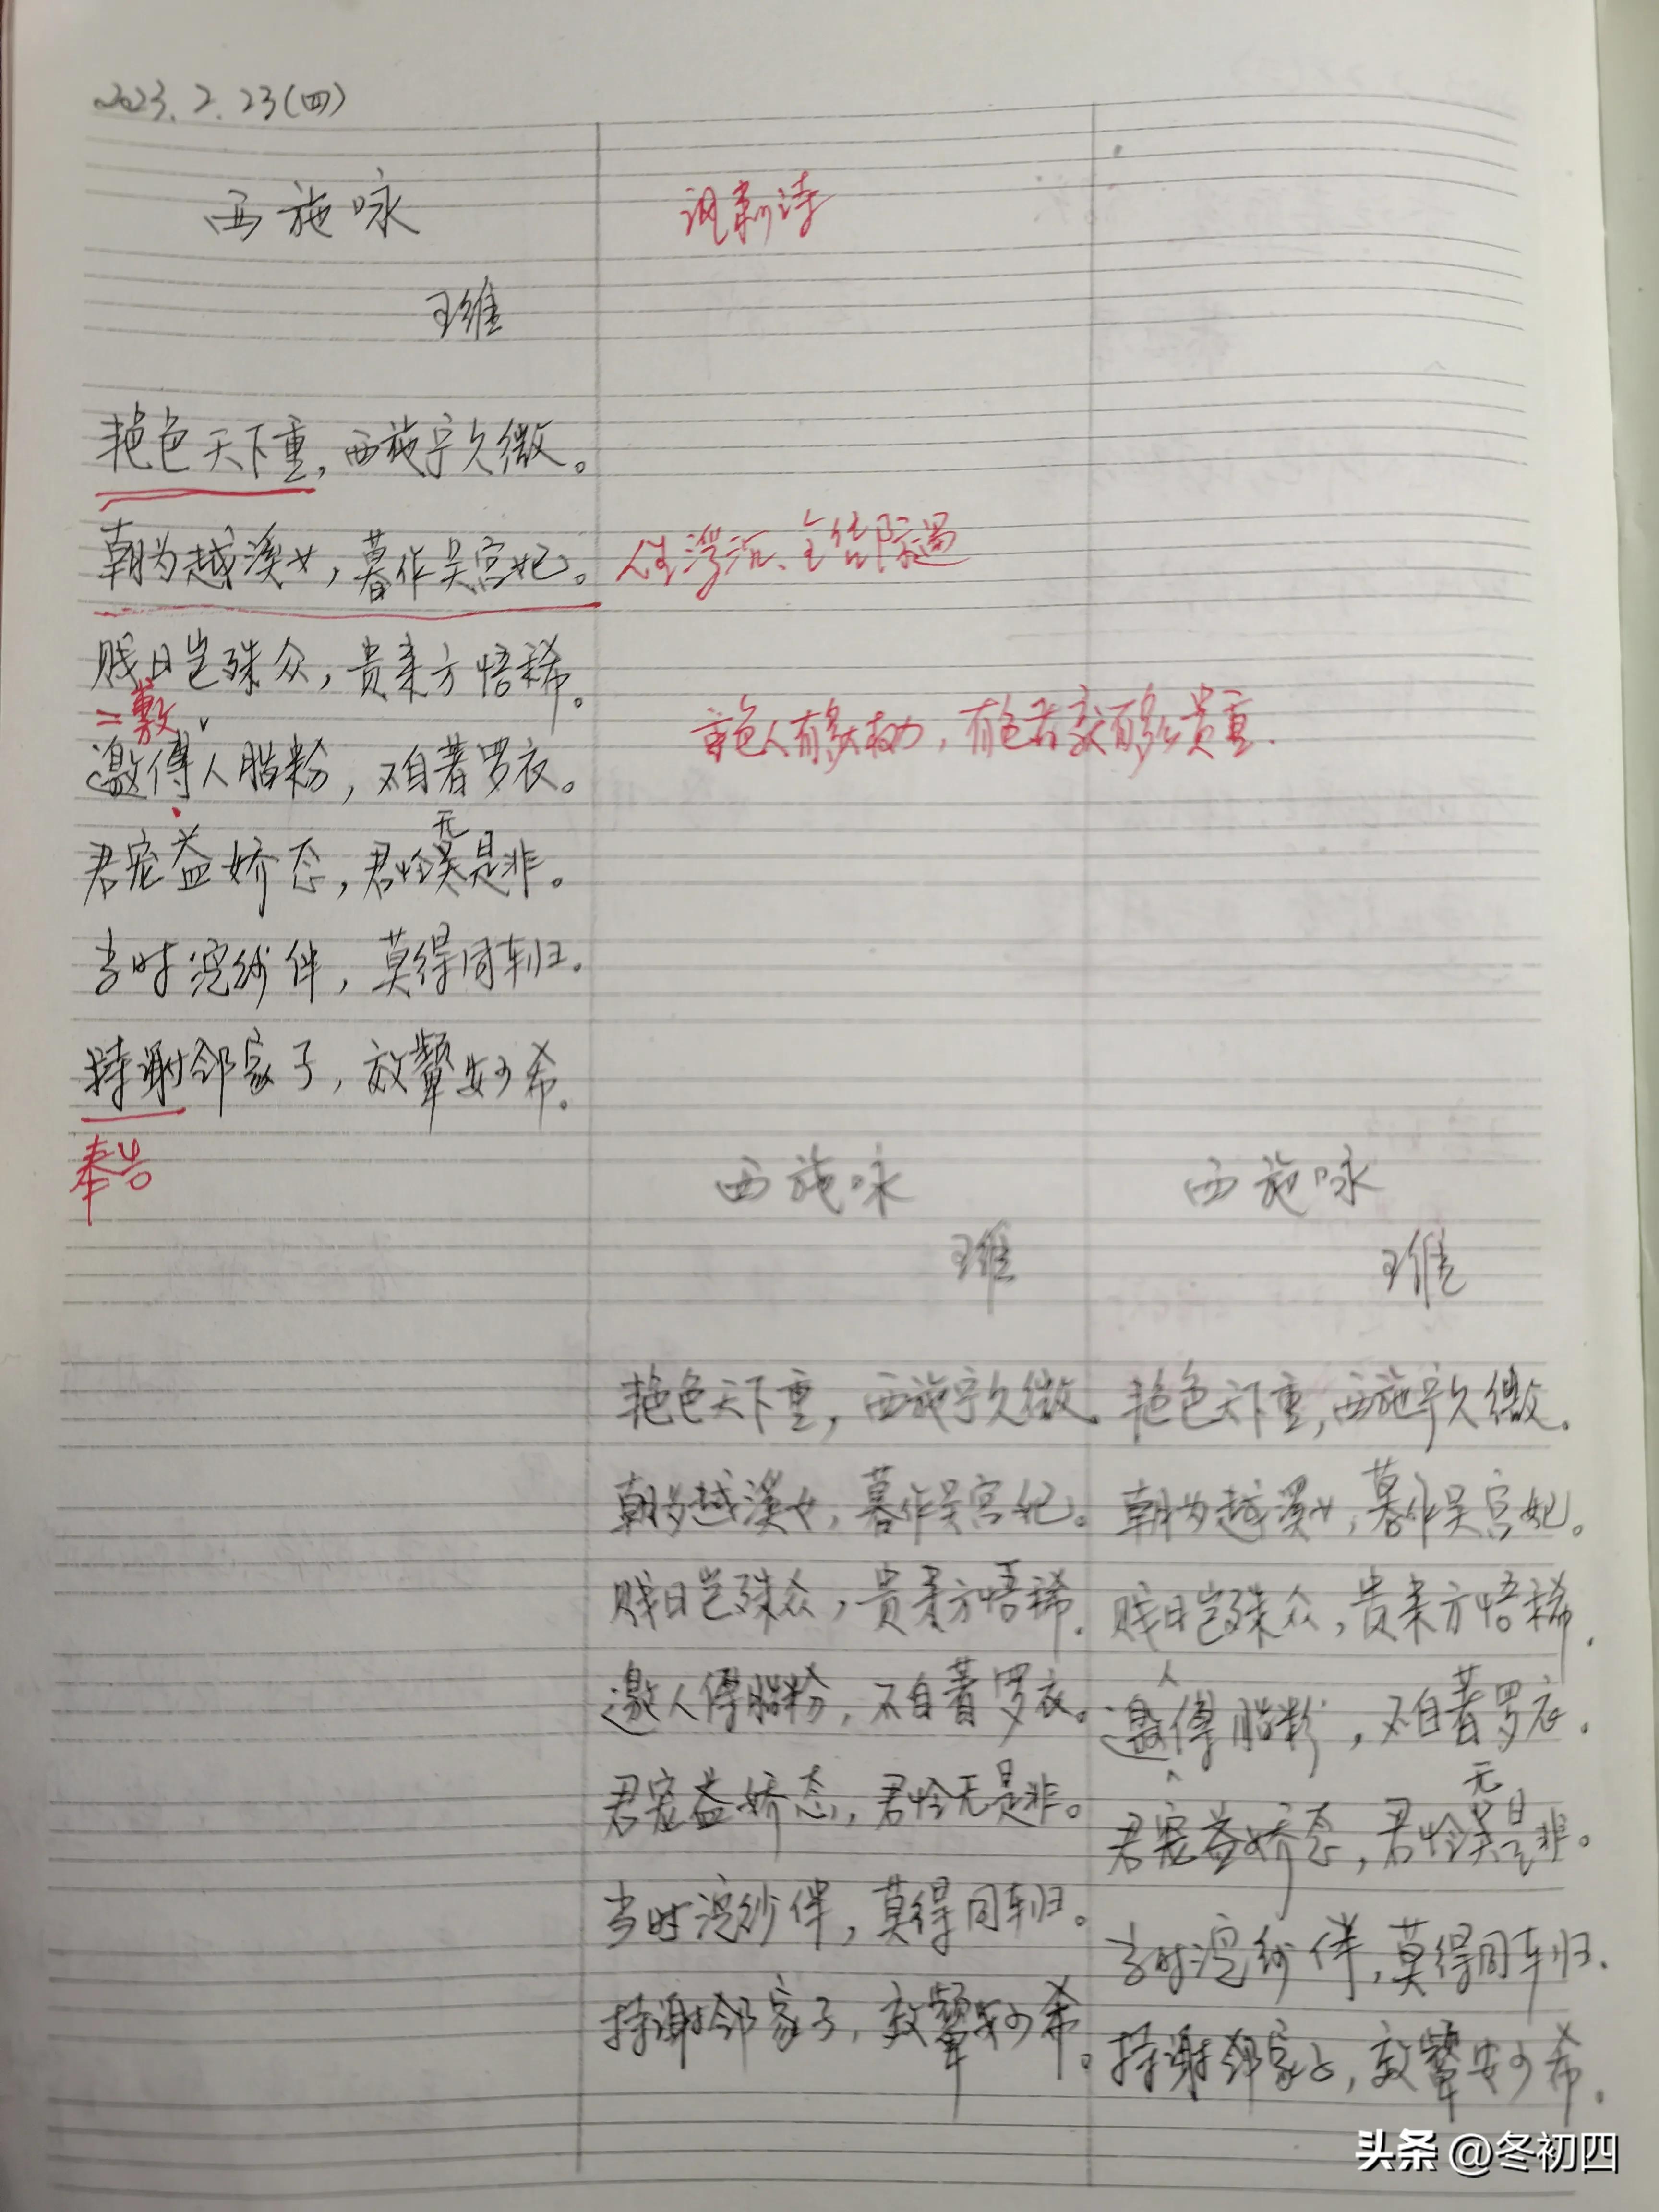 2023.2.23(四)
西施咏
讽刺诗
王维
艳色天下重，西施宁久微。
朝为越溪女，暮作吴宫妃。
人生浮沉、全凭际遇
贱日岂殊众，贵来方悟稀。
=敷
邀傅人脂粉，不自著罗衣。
重色人有多大权力，有色者变有多么贵重.
无
君宠益娇态，君怜吴是非。
当时浣纱伴，莫得同车归.
持谢邻家子，效颦安可希.
奉告
西施咏
王维
艳色天下重，西施宁久微.
朝为越溪女，暮作吴宫妃。
贱日岂殊众，贵来方悟稀.
邀人傅脂粉，不自著罗衣。
君宠益娇态，君怜无是非。
当时浣纱伴，莫得同车归。
持谢邻家子，效颦安可希。
西施咏
王维
艳色天下重，西施宁久微.
朝为越溪女，暮作吴宫妃。
贱日岂殊众，贵来方悟稀.
人
邀傅脂粉，不自著罗衣.
无
君宠益娇态，君怜吴是非。
当时浣纱伴，莫得同车归.
持谢邻家子，效颦安可希.
头条 @冬初四